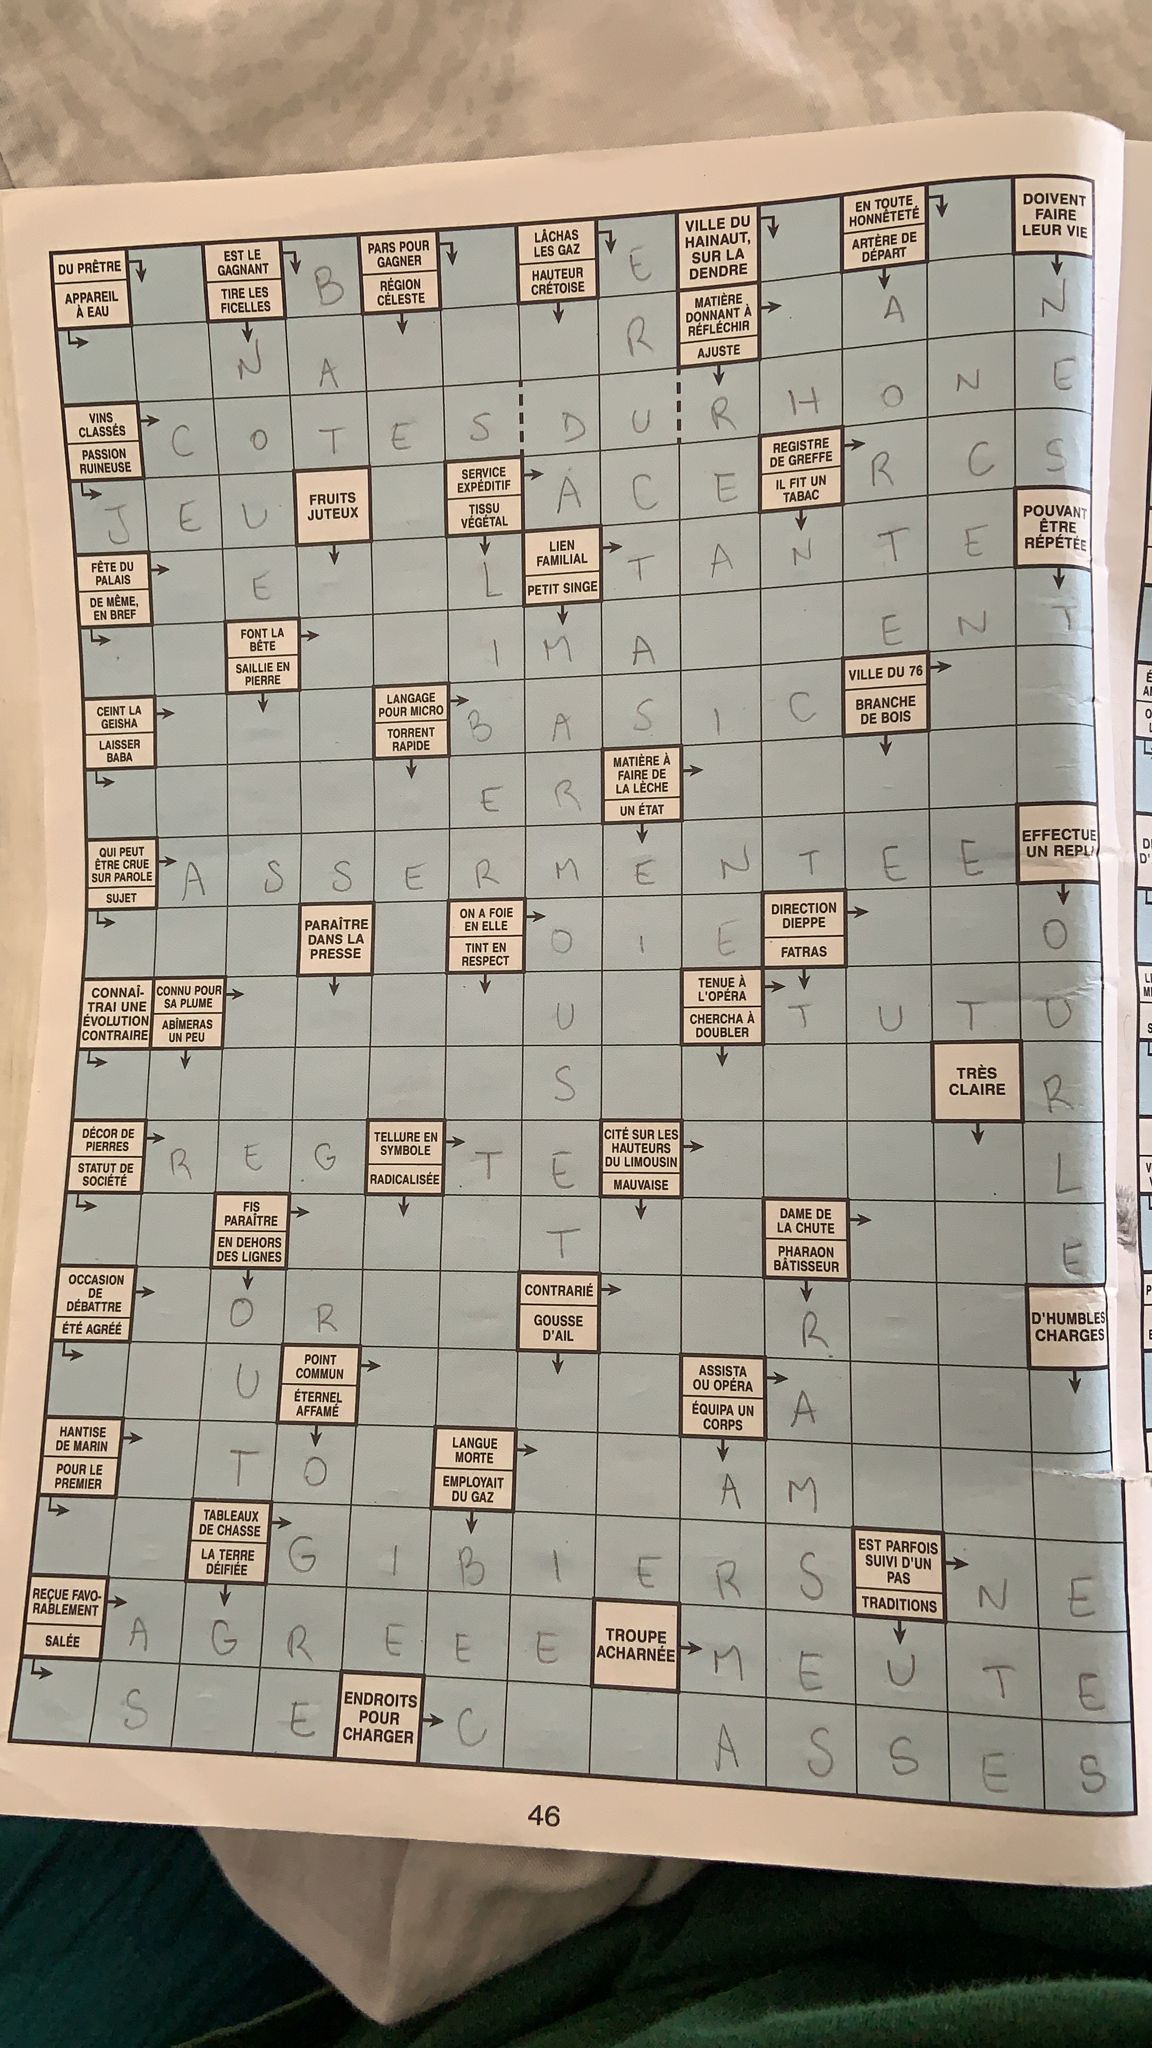 DU PRÊTRE
APPAREIL À EAU
EST LE GAGNANT
TIRE LES FICELLES
B
PARS POUR GAGNER
RÉGION CÉLESTE
LÂCHAS LES GAZ
HAUTEUR CRÉTOISE
E
VILLE DU HAINAUT, SUR LA DENDRE
EN TOUTE HONNÊTETÉ
ARTÈRE DE DÉPART
DOIVENT FAIRE LEUR VIE
N A R
MATIÈRE DONNANT À RÉFLÉCHIR
AJUSTE
A N
VINS CLASSÉS
PASSION RUINEUSE
C O T E S D U R H O N E
J E U
FRUITS JUTEUX
SERVICE EXPÉDITIF
TISSU VÉGÉTAL
A C E
REGISTRE DE GREFFE
IL FIT UN TABAC
R C S
FÊTE DU PALAIS
DE MÊME, EN BREF
E L
LIEN FAMILIAL
PETIT SINGE
T A N T E
POUVANT ÊTRE RÉPÉTÉE
FONT LA BÊTE
SAILLIE EN PIERRE
I M A E N T
CEINT LA GEISHA
LAISSER BABA
LANGAGE POUR MICRO
TORRENT RAPIDE
B A S I C
VILLE DU 76
BRANCHE DE BOIS
E R
MATIÈRE À FAIRE DE LA LÈCHE
UN ÉTAT
QUI PEUT ÊTRE CRUE SUR PAROLE
SUJET
A S S E R M E N T E E
EFFECTUE UN REPLI
PARAÎTRE DANS LA PRESSE
ON A FOIE EN ELLE
TINT EN RESPECT
O I E
DIRECTION DIEPPE
FATRAS
O
CONNAÎ-TRAI UNE ÉVOLUTION CONTRAIRE
CONNU POUR SA PLUME
ABÎMERAS UN PEU
U
TENUE À L'OPÉRA
CHERCHA À DOUBLER
T U T U
S
TRÈS CLAIRE
R
DÉCOR DE PIERRES
STATUT DE SOCIÉTÉ
R E G
TELLURE EN SYMBOLE
RADICALISÉE
T E
CITÉ SUR LES HAUTEURS DU LIMOUSIN
MAUVAISE
L
FIS PARAÎTRE
EN DEHORS DES LIGNES
T
DAME DE LA CHUTE
PHARAON BÂTISSEUR
E
OCCASION DE DÉBATTRE
ÉTÉ AGRÉÉ
O R
CONTRARIÉ
GOUSSE D'AIL
R
D'HUMBLES CHARGES
U
POINT COMMUN
ÉTERNEL AFFAMÉ
ASSISTA OU OPÉRA
ÉQUIPA UN CORPS
A
HANTISE DE MARIN
POUR LE PREMIER
T O
LANGUE MORTE
EMPLOYAIT DU GAZ
A M
TABLEAUX DE CHASSE
LA TERRE DÉIFIÉE
G I B I E R S
EST PARFOIS SUIVI D'UN PAS
TRADITIONS
N E
REÇUE FAVO-RABLEMENT
SALÉE
A G R E E E
TROUPE ACHARNÉE
M E U T E
S E
ENDROITS POUR CHARGER
C A S S E S
46